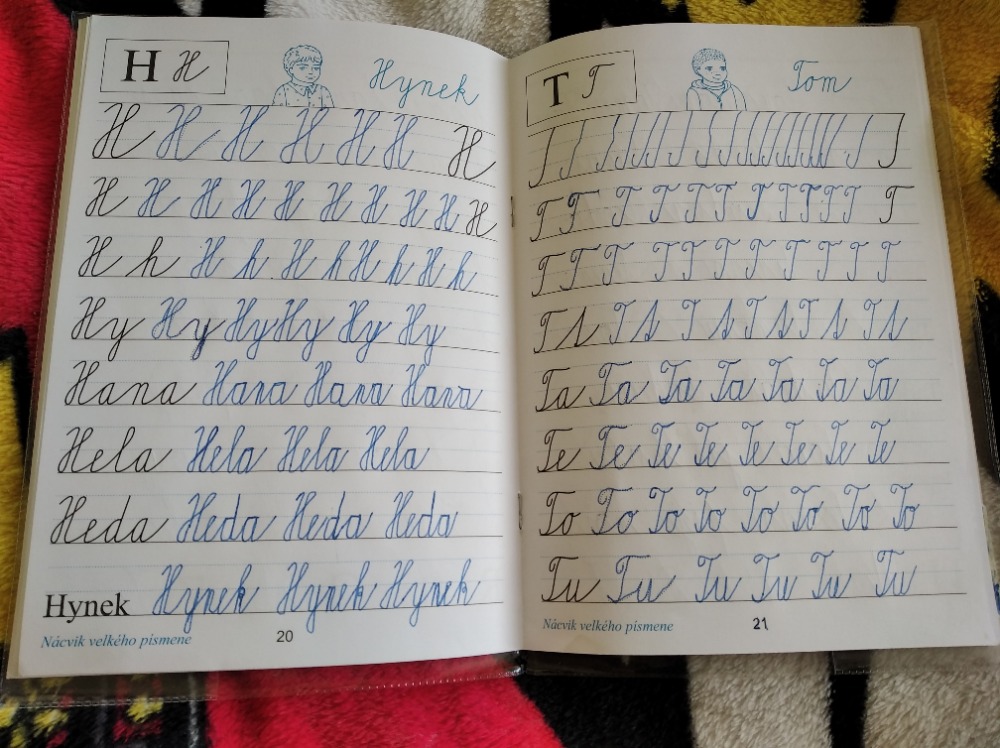 H H Hynek
H H H H H H H
H H H H H H H H H H
H h H h H h H h H h
Hy Hy Hy Hy Hy Hy
Hana Hana Hana Hana
Hela Hela Hela Hela
Heda Heda Heda Heda
Hynek Hynek Hynek Hynek
Nácvik velkého písmene
20
T T Tom
T T T T T T T T T T T T
T T T T T T T T T T T
T s T s T s T s T s T s
Ta Ta Ta Ta Ta Ta Ta
Te Te Te Te Te Te Te Te
To To To To To To To To
Tu Tu Tu Tu Tu Tu
Nácvik velkého písmene
21